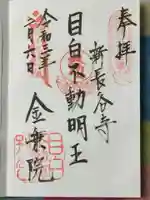 奉拝
新長谷寺
目白不動明王
金乗院
令和三年
二月六日